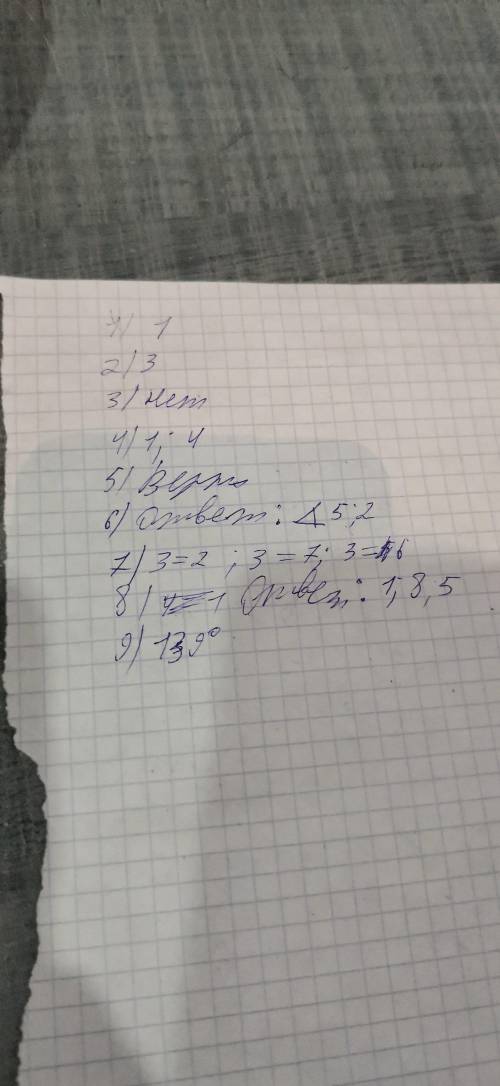 1) 1
2) 3
3) Нет
4) 1; 4
5) Верно
6) Ответ: ∡ 5; 2
7) 3=2 ; 3=7; 3=6
8) Ответ: 1, 8, 5
9) 139°